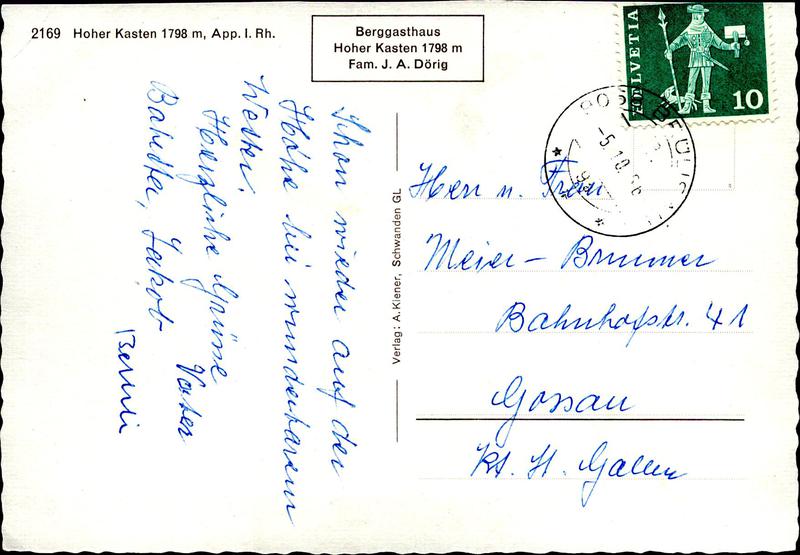 2169 Hoher Kasten 1798 m, App. I. Rh.
Berggasthaus
Hoher Kasten 1798 m
Fam. J. A. Dörig
HELVETIA
10
Schon wieder auf der
Höhe bei wunderbarem
Wetter.
Herzliche Grüsse
Vater
Babettli, Jakob
Verlag: A. Kiener, Schwanden GL
Herr u. Frau
Meier - Brunner
Bahnhofstr. 41
Gossau
Kt. St. Gallen